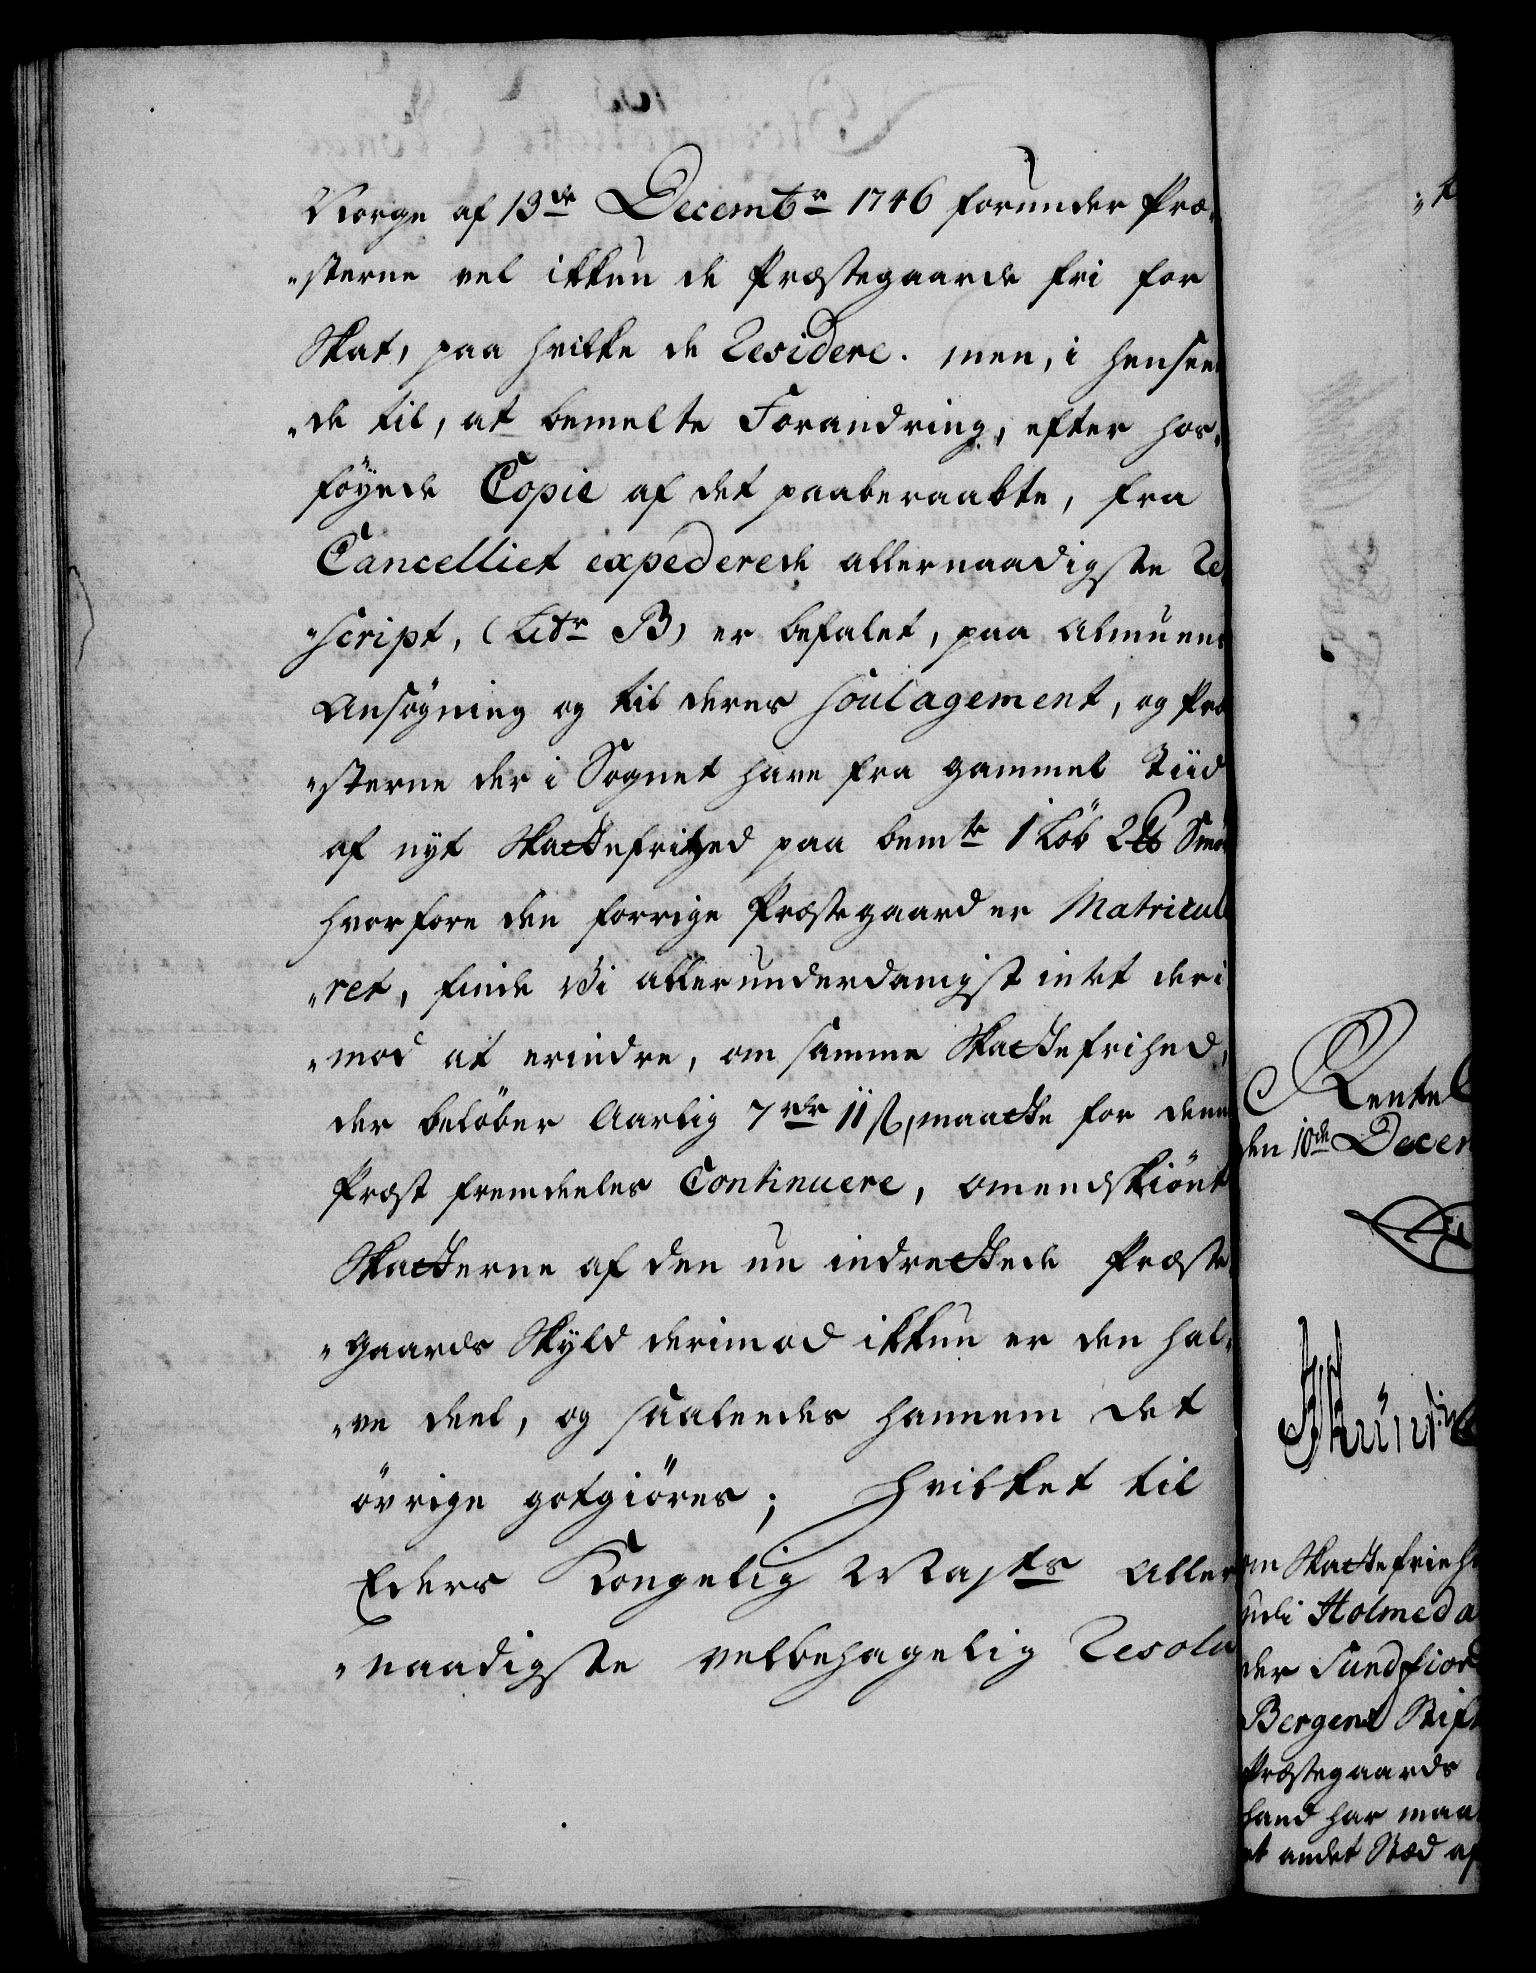 Norge af 13de Decembr 1746 forunder Præ-
"sterne vel ikkun de Præstegaarde fri for
Skat, paa hvilke de Residere. men, i henseen
"de til, at bemelte Forandring, efter hos-
föyede Copie af det paaberaabte, fra
Cancelliet expederede allernaadigste Re
"script, (Litr B) er befalet, paa Almuens
Ansøgning og til deres Soulagement, og Præ
"sterne der i Sognet have fra gammel Tiid
af nyt Skattefrihed paa bemte 1 Löb 2 ℔ Smör
hvorfore den forrige Præstegaard er Matricule
"ret, finde Vi allerunderdanigst intet deri
"mod at erindre, om samme Skattefrihed,
der belöber Aarlig 7 rdr 11 ß, maatte for denne
Præst fremdeeles Continuere, omendskiönt
Skatterne af den nu indrettede Præste
"gaards Skyld derimod ikkun er den hal-
"ve deel, og saaleedes hannem det
övrige gotgiöres; Hvilket til
Eders Kongelig Mayts Aller
"naadigste velbehagelig Resolu
Rentek
den 10de Decem
om Skattefriehe
udi Holmeda
der Sundfiord
Bergens Stift
Præstegaards
hand har maa
et andet Stæd af